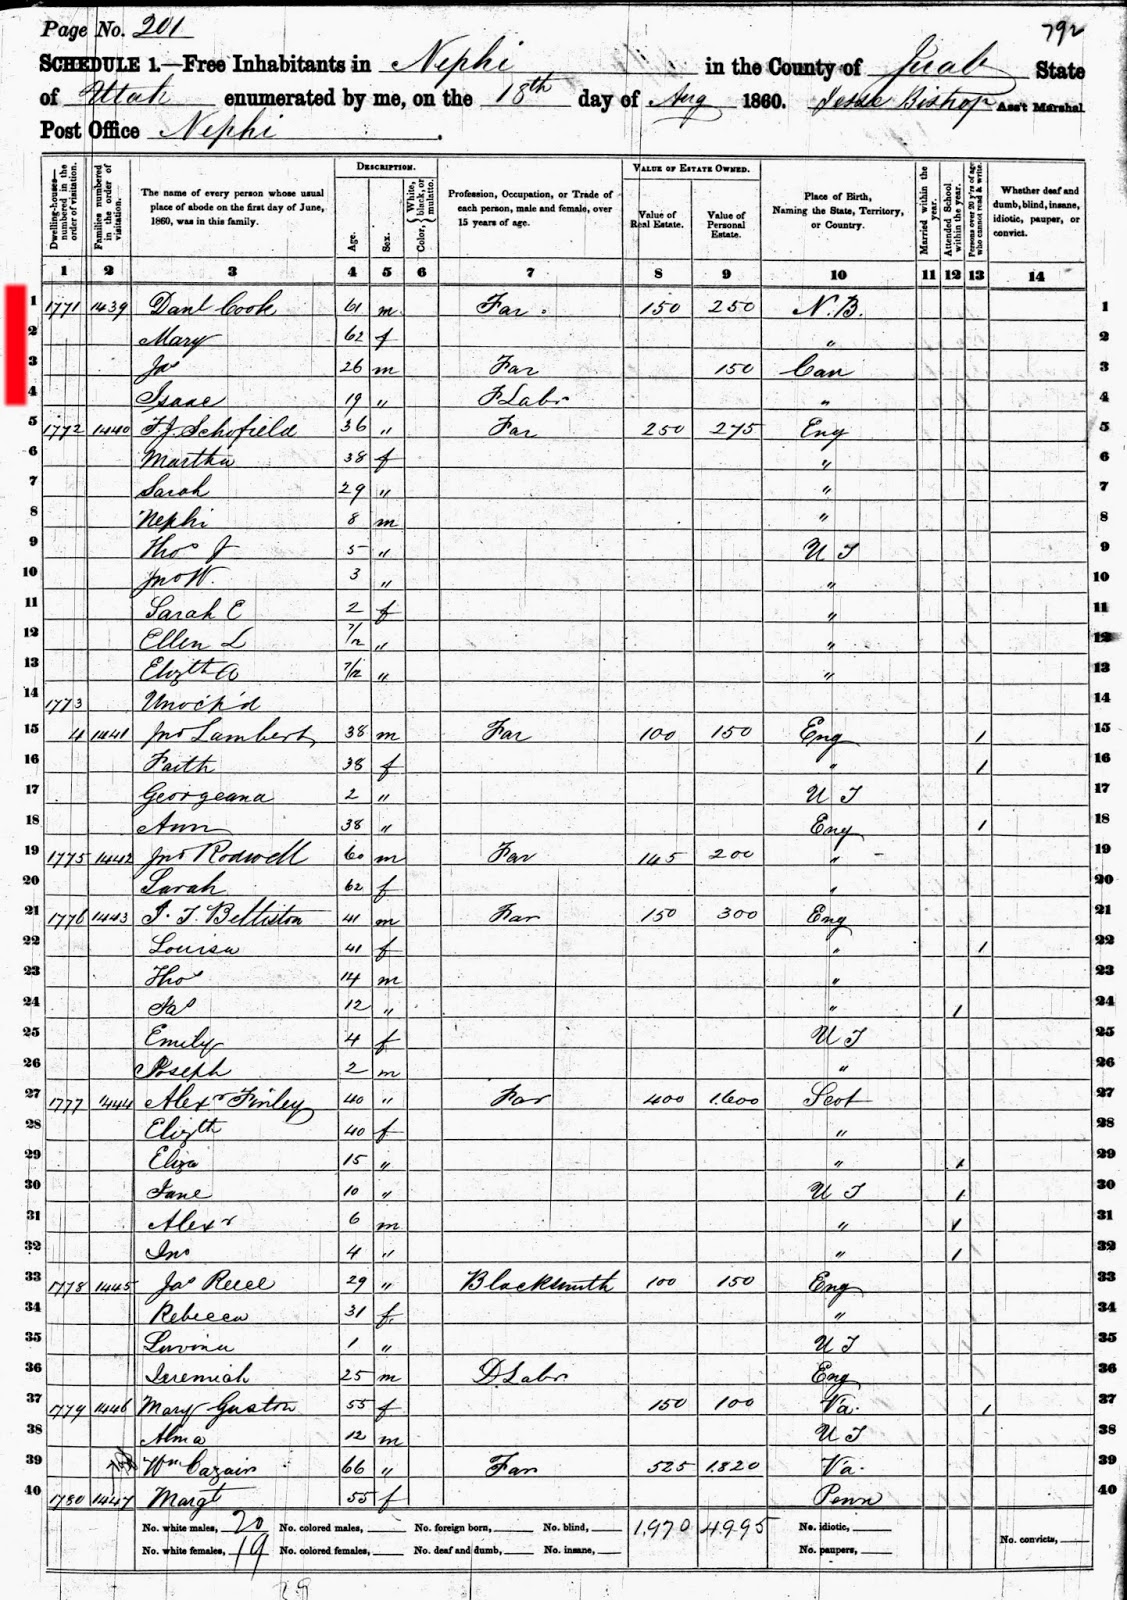 Page No. 201
792
SCHEDULE 1.—Free Inhabitants in Nephi in the County of Juab State
of Utah enumerated by me, on the 18th day of Aug 1860. Jesse Bishop Ass't Marshal.
Post Office Nephi.
Dwelling-houses—numbered in the order of visitation.
Families numbered in the order of visitation.
The name of every person whose usual place of abode on the first day of June, 1860, was in this family.
DESCRIPTION.
Age.
Sex.
Color, White, black, or mulatto.
Profession, Occupation, or Trade of each person, male and female, over 15 years of age.
VALUE OF ESTATE OWNED.
Value of Real Estate.
Value of Personal Estate.
Place of Birth, Naming the State, Territory, or Country.
Married within the year.
Attended School within the year.
Persons over 20 y'rs of age who cannot read & write.
Whether deaf and dumb, blind, insane, idiotic, pauper, or convict.
1 2 3 4 5 6 7 8 9 10 11 12 13 14
1 1771 1439 Danl Cook 61 m Far. 150 250 N.B. 1
2 Mary 62 f " 2
3 Jas 26 m Far 150 Can 3
4 Isaac 19 " F Labr " 4
5 1772 1440 T.J. Schofield 36 " Far 250 275 Eng 5
6 Martha 38 f " 6
7 Sarah 29 " " 7
8 Nephi 8 m " 8
9 Thos J 5 " U T 9
10 Jno W. 3 " " 10
11 Sarah E 2 f " 11
12 Ellen L 7/12 " " 12
13 Elizth A 7/12 " " 13
14 1773 Unock'd 14
15 4 1441 Jno Lambert 38 m Far 100 150 Eng / 15
16 Faith 38 f " / 16
17 Georgeana 2 " U T 17
18 Ann 38 " Eng / 18
19 1775 1442 Jno Rodwell 60 m Far 145 200 " 19
20 Sarah 62 f " 20
21 1776 1443 J. T. Belliston 41 m Far 150 300 Eng 21
22 Louisa 41 f " / 22
23 Thos 14 m " 23
24 Jas 12 " " / 24
25 Emily 4 f U T 25
26 Joseph 2 m " 26
27 1777 1444 Alexr Finley 40 " Far 400 1.600 Scot 27
28 Elizth 40 f " 28
29 Eliza 15 " " / 29
30 Jane 10 " U T / 30
31 Alexr 6 m " / 31
32 Jno 4 " " / 32
33 1778 1445 Jas Reece 29 " Blacksmith 100 150 Eng 33
34 Rebecca 31 f. " 34
35 Lovina 1 " U T 35
36 Jeremiah 25 m D Labr Eng 36
37 1779 1446 Mary Guston 55 f 150 100 Va. / 37
38 Alma 12 m U T 38
39 Wm Cazair 66 " Far 525 1.820 Va. 39
40 1780 1447 Margt 55 f Penn 40
No. white males, 20 No. colored males, No. foreign born, No. blind, 1,970 4995 No. idiotic,
No. white females, 19 No. colored females, No. deaf and dumb, No. insane, No. paupers, No. convicts,